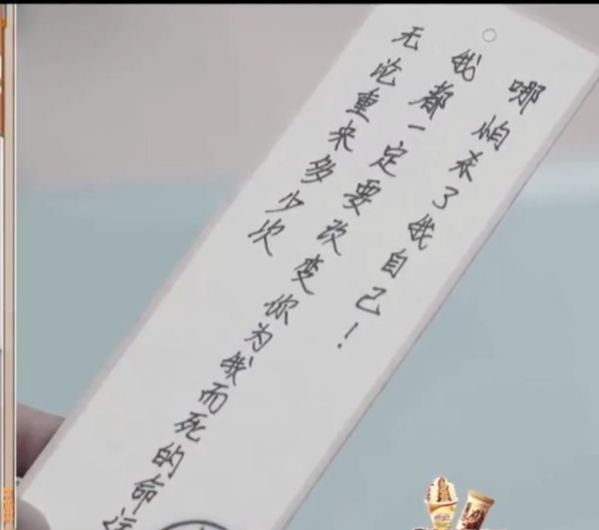 无论重来多少次
我都一定要改变你为我而死的命运
哪怕杀了我自己！